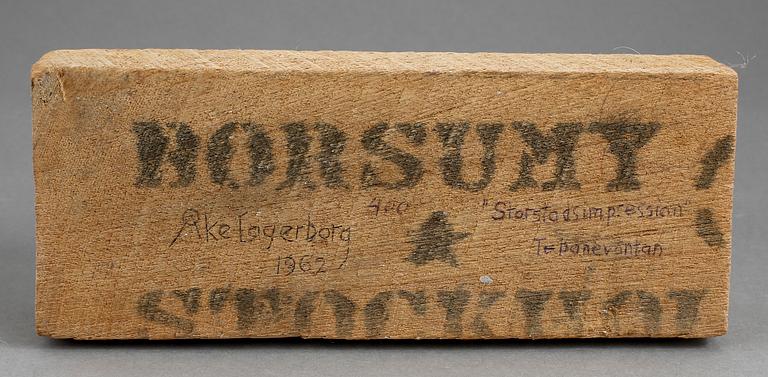 BORSUMY
400
Åke Lagerborg
1962
"Storstadsimpression"
T-baneväntan
STOCKHOL